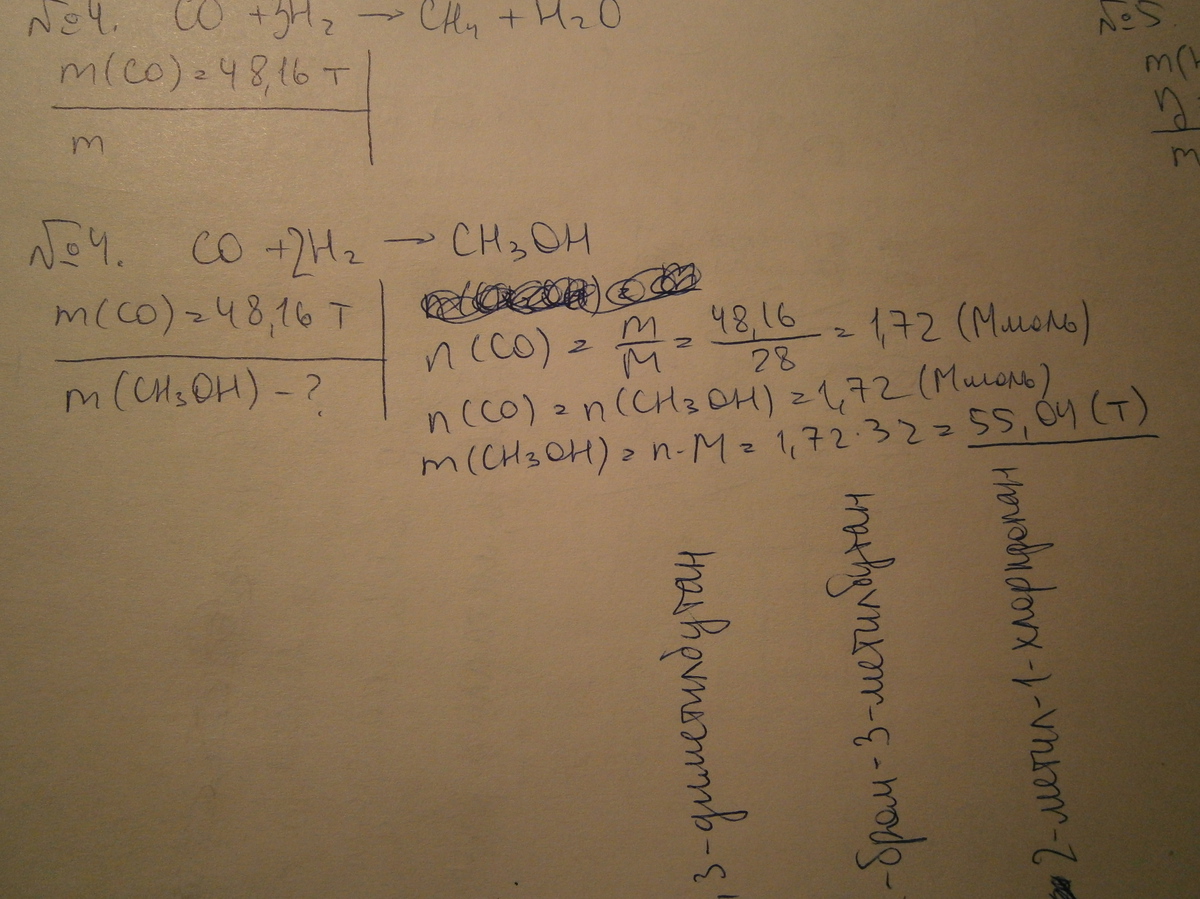 №4. CO + 3H₂ → CH₄ + H₂O
m(CO) = 48,16 т
m
№5
m(
m
№4. CO + 2H₂ → CH₃OH
m(CO) = 48,16 т
m(CH₃OH) - ?
n(CO) = m/M = 48,16/28 = 1,72 (Ммоль)
n(CO) = n(CH₃OH) = 1,72 (Ммоль)
m(CH₃OH) = n·M = 1,72·32 = 55,04 (т)
,3-диметилбутан
-бром-3-метилбутан
2-метил-1-хлорпропан